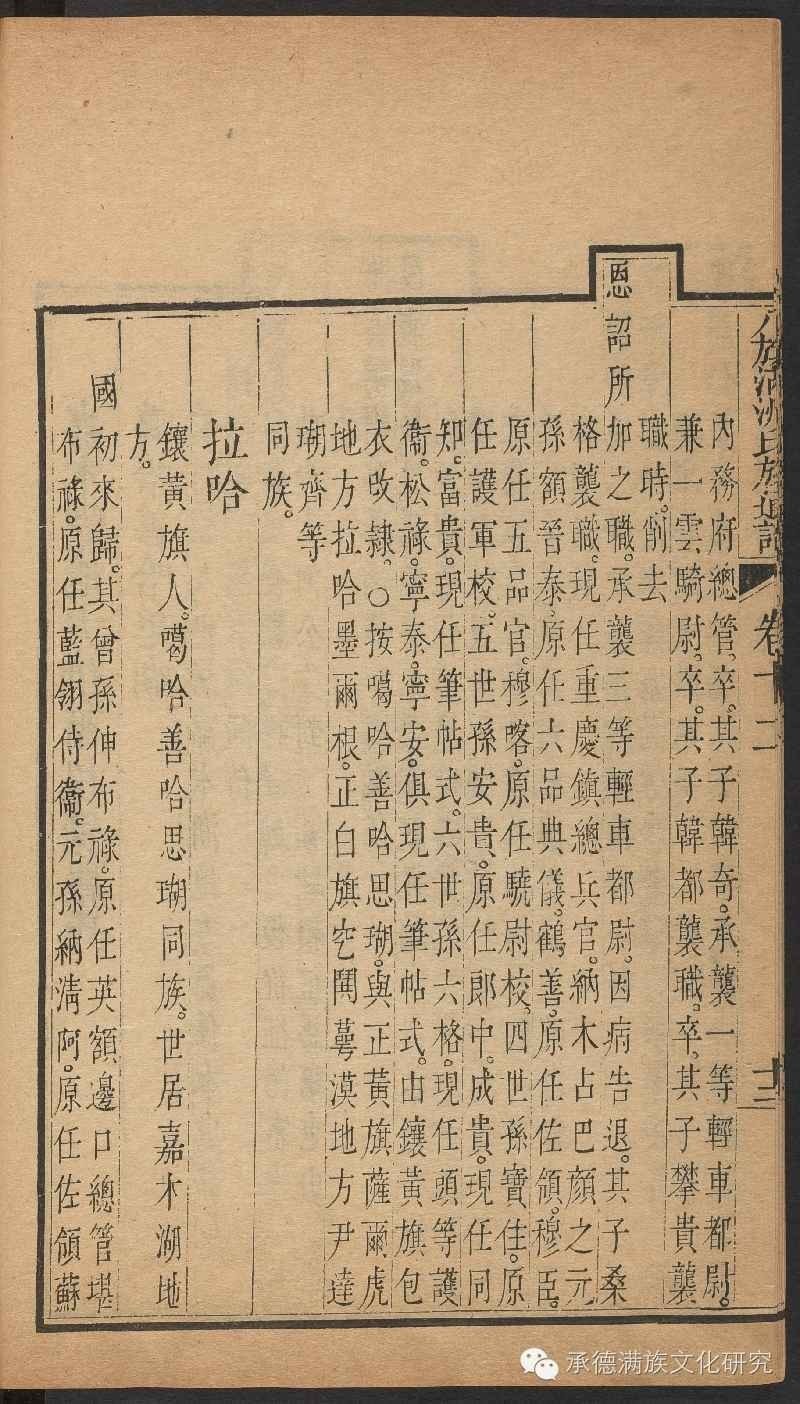 八旗滿洲氏族通譜 卷十二
內務府總管。卒。其子韓奇。承襲一等輕車都尉。
兼一雲騎尉。卒。其子韓都襲職。卒。其子攀貴襲
職時。削去
恩詔所加之職。承襲三等輕車都尉。因病告退。其子桑
格襲職。現任重慶鎮總兵官。納木占巴顏之元
孫額晉泰。原任六品典儀。鶴善。原任佐領。穆臣。
原任五品官。穆略。原任驍尉校。四世孫寶住。原
任護軍校。五世孫安貴。原任郎中。成貴。現任同
知。富貴。現任筆帖式。六世孫六格。現任頭等護
衞。松祿。寧泰。寧安。俱現任筆帖式。由鑲黃旗包
衣改隸。○按噶哈善哈思瑚。與正黃旗薩爾虎
地方拉哈墨爾根。正白旗穵閧蕚漠地方尹達
瑚齊等
同族。
拉哈
鑲黃旗人。噶哈善哈思瑚同族。世居嘉木湖地
方。
國初來歸。其曾孫伸布祿。原任英額邊口總管。堪
布祿。原任藍翎侍衞。元孫納淸阿。原任佐領。蘇
承德满族文化研究